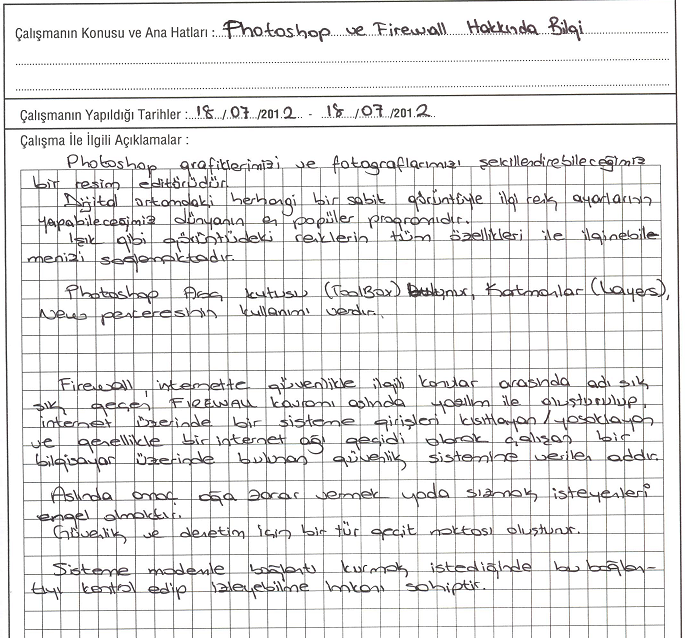 Çalışmanın Konusu ve Ana Hatları : Photoshop ve Firewall Hakkında Bilgi
Çalışmanın Yapıldığı Tarihler : 18 / 07 /2012 - 18 / 07 /2012
Çalışma İle İlgili Açıklamalar :
Photoshop grafiklerimizi ve fotograflarımızı şekillendirebileceğimiz
bir resim editörüdür.
Dijital ortamdaki herhangi bir sabit görüntüyle ilgi renk ayarlarının
yapabileceğimiz dünyanın en popüler programıdır.
Işık gibi görüntüdeki renklerin tüm özellikleri ile ilginebile
menizi sağlamaktadır.
Photoshop Araç kutusu (ToolBox) , Katmanlar (Layers),
New penceresinin kullanımı vardır.
Firewall, internette güvenlikle ilgili konular arasında adı sık
sık geçen FIREWALL kavramı aslında yazılım ile oluşturulup,
internet üzerinde bir sisteme girişleri kısıtlayan / yasaklayan
ve genellikle bir internet ağı geçidi olarak çalışan bir
bilgisayar üzerinde bulunan güvenlik sistemine verilen addır.
Aslında amaç ağa zarar vermek yada sızmak isteyenleri
engel olmaktır.
Güvenlik ve denetim için bir tür geçit noktası oluşturur.
Sisteme modemle bağlantı kurmak istediğinde bu bağlan-
tıyı kontrol edip izleyebilme imkanı sahiptir.